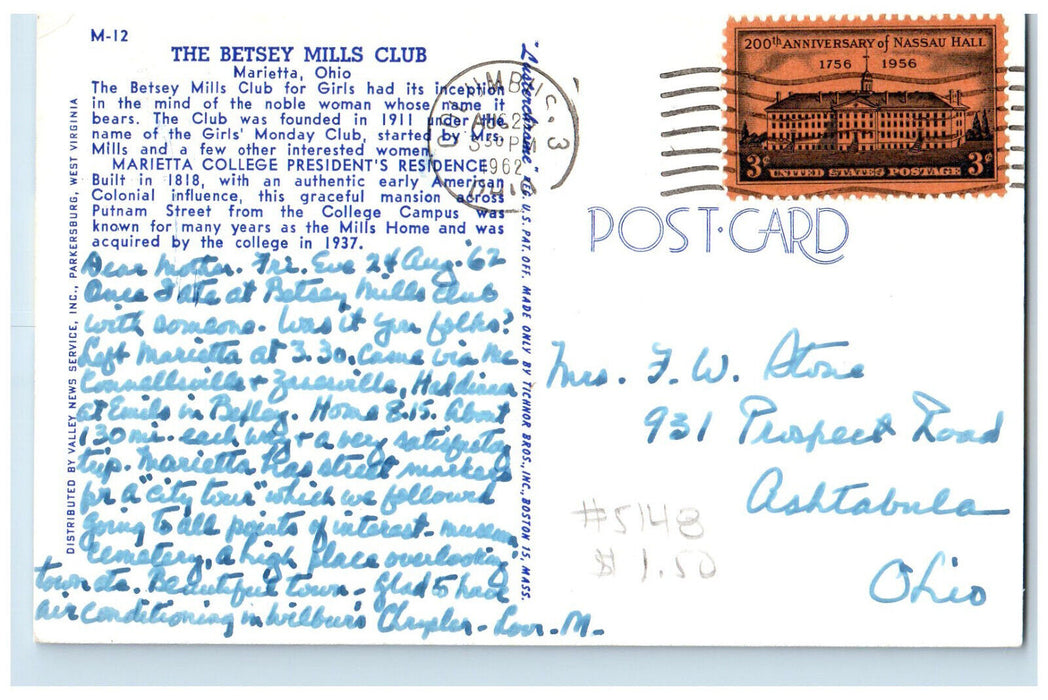 M-12
THE BETSEY MILLS CLUB
Marietta, Ohio
The Betsey Mills Club for Girls had its inception
in the mind of the noble woman whose name it
bears. The Club was founded in 1911 under the
name of the Girls' Monday Club, started by Mrs.
Mills and a few other interested women.
MARIETTA COLLEGE PRESIDENT'S RESIDENCE
Built in 1818, with an authentic early American
Colonial influence, this graceful mansion across
Putnam Street from the College Campus was
known for many years as the Mills Home and was
acquired by the college in 1937.
Dear Mother. Fri. Eve 24 Aug. '62
Once I ate at Betsey Mills Club
with someone. Was it you folks?
Left Marietta at 3.30. Came via Mc
Connellsville + Zanesville, Had dinner
at Emils in Bexley. Home 8.15. About
130 mi. each way + a very satisfactory
trip. Marietta has street markers
for a "city tour" which we followed
going to all points of interest - museum,
cemetery, a high place overlooking
town etc. Beautiful town - Glad to have
air conditioning in Wilbur's Chrysler - Love - M -
DISTRIBUTED BY VALLEY NEWS SERVICE, INC., PARKERSBURG, WEST VIRGINIA
"Lusterchrome" REG. U. S. PAT. OFF. MADE ONLY BY TICHNOR BROS., INC., BOSTON 15, MASS.
COLUMBUS, 3
AUG 2
5 30 PM
1962
OHIO
200th ANNIVERSARY of NASSAU HALL
1756 1956
3¢ UNITED STATES POSTAGE 3¢
POST CARD
Mrs. F. W. Stone
931 Prospect Road
Ashtabula
Ohio
#5148
$1.50